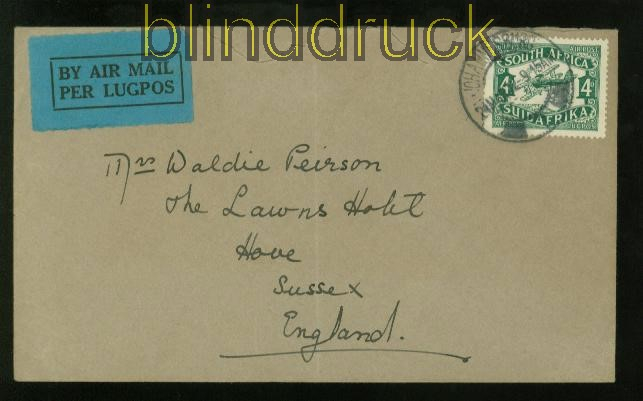 blinddruck
BY AIR MAIL
PER LUGPOS
AIR POST
SOUTH AFRICA
4D 4D
SUIDAFRIKA
Mrs Waldie Peirson
The Lawns Hotel
Hove
Sussex
England.